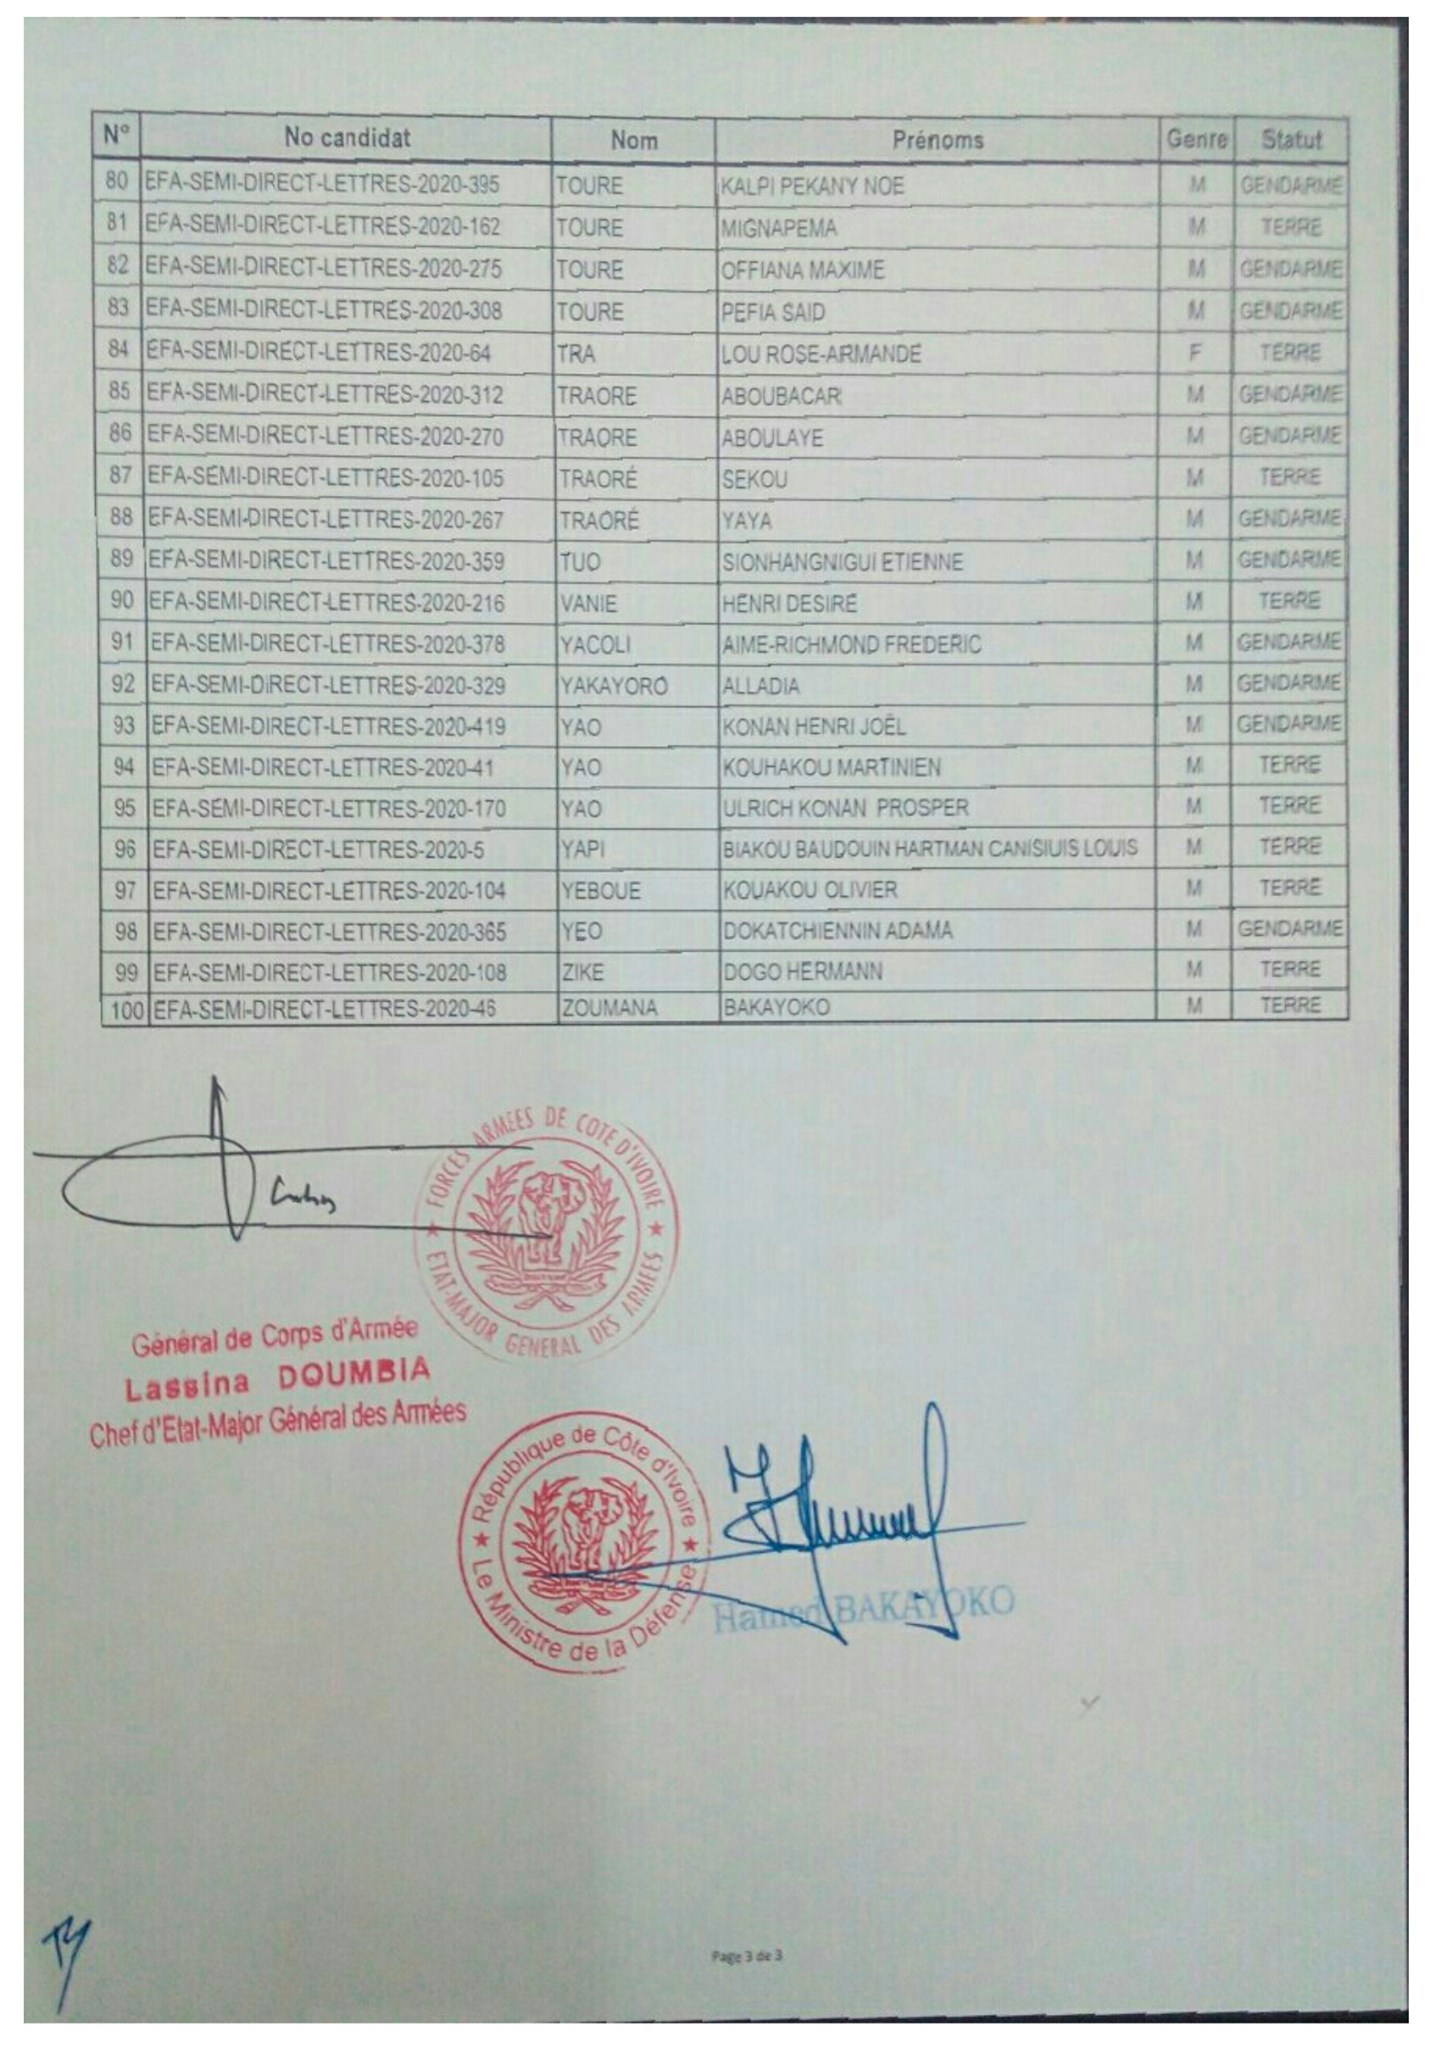 N° No candidat Nom Prénoms Genre Statut
80 EFA-SEMI-DIRECT-LETTRES-2020-395 TOURE KALPI PEKANY NOE M GENDARME
81 EFA-SEMI-DIRECT-LETTRES-2020-162 TOURE MIGNAPEMA M TERRE
82 EFA-SEMI-DIRECT-LETTRES-2020-275 TOURE OFFIANA MAXIME M GENDARME
83 EFA-SEMI-DIRECT-LETTRES-2020-308 TOURE PEFIA SAID M GENDARME
84 EFA-SEMI-DIRECT-LETTRES-2020-64 TRA LOU ROSE-ARMANDE F TERRE
85 EFA-SEMI-DIRECT-LETTRES-2020-312 TRAORE ABOUBACAR M GENDARME
86 EFA-SEMI-DIRECT-LETTRES-2020-270 TRAORE ABOULAYE M GENDARME
87 EFA-SEMI-DIRECT-LETTRES-2020-105 TRAORÉ SEKOU M TERRE
88 EFA-SEMI-DIRECT-LETTRES-2020-267 TRAORÉ YAYA M GENDARME
89 EFA-SEMI-DIRECT-LETTRES-2020-359 TUO SIONHANGNIGUI ETIENNE M GENDARME
90 EFA-SEMI-DIRECT-LETTRES-2020-216 VANIE HENRI DESIRE M TERRE
91 EFA-SEMI-DIRECT-LETTRES-2020-378 YACOLI AIME-RICHMOND FREDERIC M GENDARME
92 EFA-SEMI-DIRECT-LETTRES-2020-329 YAKAYORO ALLADIA M GENDARME
93 EFA-SEMI-DIRECT-LETTRES-2020-419 YAO KONAN HENRI JOËL M GENDARME
94 EFA-SEMI-DIRECT-LETTRES-2020-41 YAO KOUHAKOU MARTINIEN M TERRE
95 EFA-SEMI-DIRECT-LETTRES-2020-170 YAO ULRICH KONAN PROSPER M TERRE
96 EFA-SEMI-DIRECT-LETTRES-2020-5 YAPI BIAKOU BAUDOUIN HARTMAN CANISIUIS LOUIS M TERRE
97 EFA-SEMI-DIRECT-LETTRES-2020-104 YEBOUE KOUAKOU OLIVIER M TERRE
98 EFA-SEMI-DIRECT-LETTRES-2020-365 YEO DOKATCHIENNIN ADAMA M GENDARME
99 EFA-SEMI-DIRECT-LETTRES-2020-108 ZIKE DOGO HERMANN M TERRE
100 EFA-SEMI-DIRECT-LETTRES-2020-46 ZOUMANA BAKAYOKO M TERRE
FORCES ARMÉES DE COTE D'IVOIRE
ETAT-MAJOR GENERAL DES ARMEES
Général de Corps d'Armée
Lassina DOUMBIA
Chef d'Etat-Major Général des Armées
République de Côte d'Ivoire
Le Ministre de la Défense
Hamed BAKAYOKO
Page 3 de 3